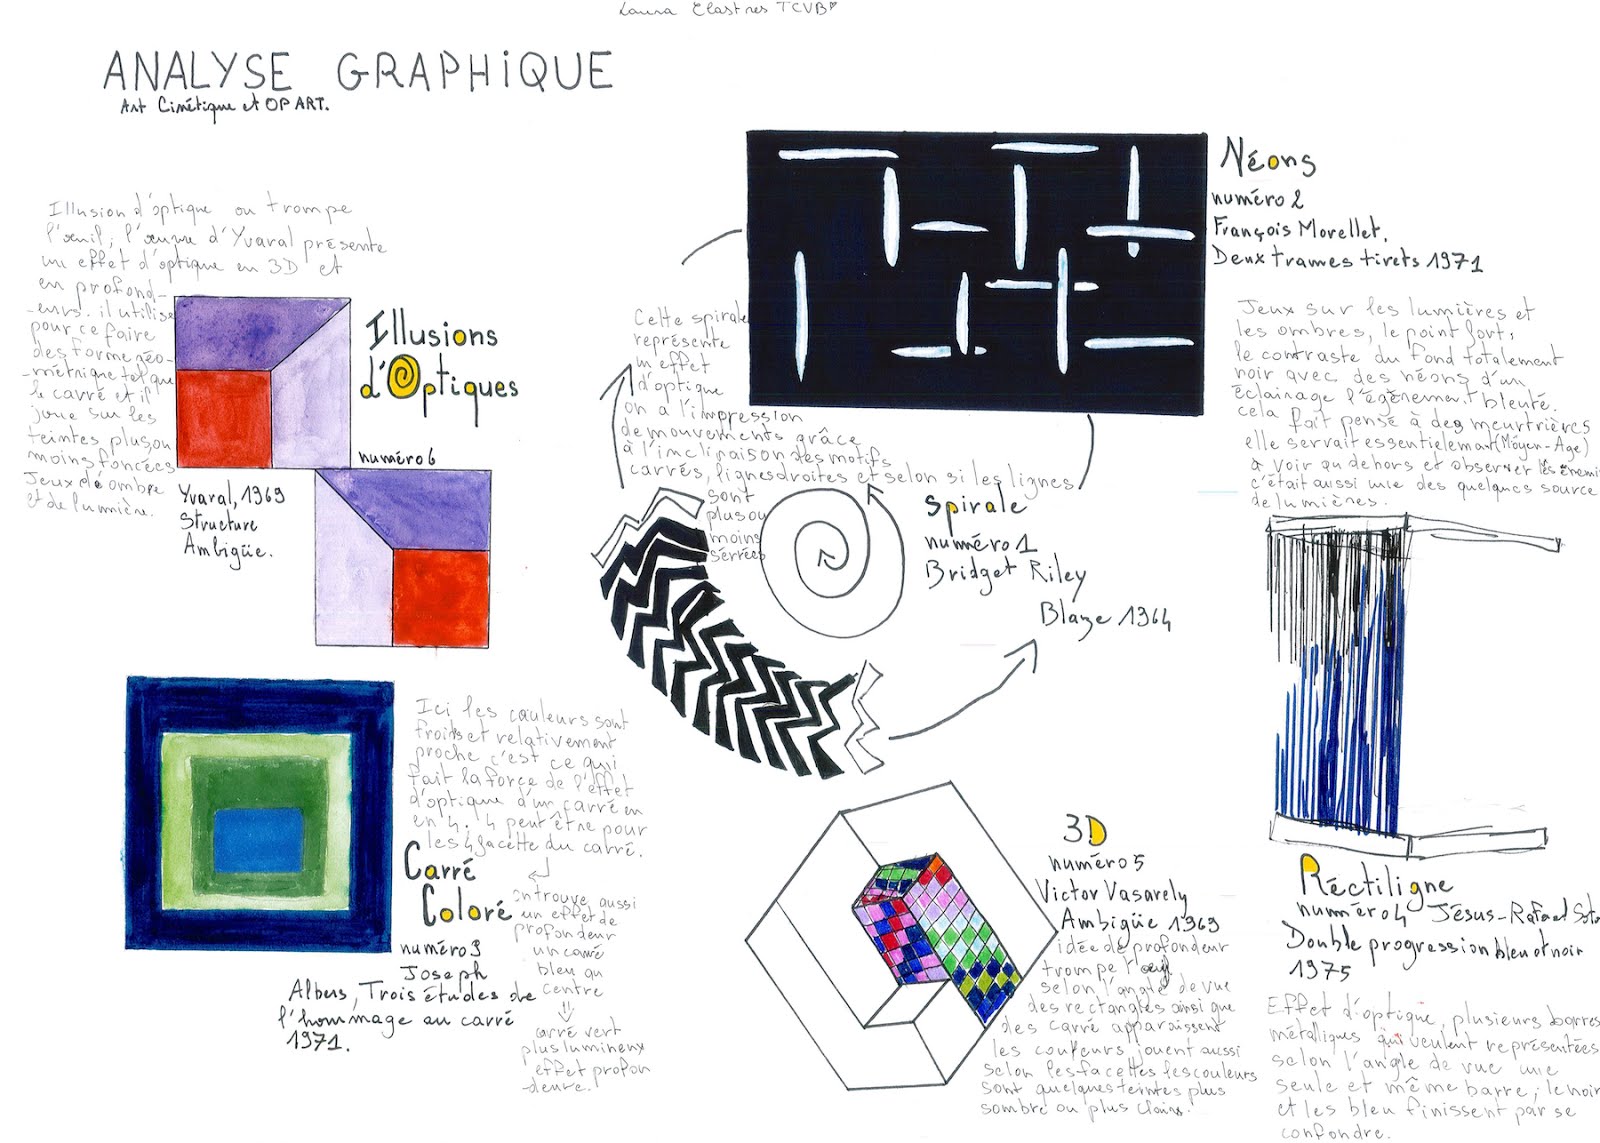 Laura Elastres TCVB
ANALYSE GRAPHiQUE
Art Cinétique et OP ART.
Illusion d'optique ou trompe
l'œuil, l'œuvre d'Yvaral présente
un effet d'optique en 3D et
en profond-
-eurs. il utilise
pour ce faire
des forme géo-
-métrique tel que
le carré et il
joue sur les
teintes plus ou
moins foncées
Jeux de ombre
et de lumière.
Illusions
d'Optiques
numéro 6
Yvaral, 1969
Structure
Ambigüe.
Néons
numéro 2
François Morellet,
Deux trames tirets 1971
Jeux sur les lumières et
les ombres, le point fort:
le contraste du fond totalement
noir avec des néons d'un
éclairage l'égèrement bleuté.
cela fait pensé à des meurtrières
elle servait essentielemant (Moyen-Age)
à voir au dehors et observer les enemis
c'était aussi une des quelques source
de lumières.
Cette spirale
représente
un effet
d'optique
on a l'impression
de mouvements grâce
à l'inclinaison des motifs
carrés, lignes droites et selon si les lignes
sont
plus ou
moins
serrées
Spirale
numéro 1
Bridget Riley
Blaze 1964
Ici les couleurs sont
froids et relativement
proche c'est ce qui
fait la force de l'effet
d'optique d'un carré en
en 4. 4 peut être pour
les 4 facette du carré.
Carré
Coloré
numéro 3
Joseph
Albers, Trois études de
l'hommage au carré
1971.
on trouve aussi
un effet de
profondeur
un carré
bleu au
centre
carré vert
plus lumineux
effet profon
-deure.
3D
numéro 5
Victor Vasarely
Ambigüe 1969
idée de profondeur
trompe l'œil
selon l'angle de vue
des rectangles ainsi que
des carré apparaissent
les couleurs jouent aussi
selon les facettes les couleurs
sont quelques teintes plus
sombre ou plus clairs.
Réctiligne
numéro 4 Jésus-Rafael Soto
Double progression bleu et noir
1975
Effet d'optique, plusieurs barres
métalliques qui veulent représentées
selon l'angle de vue une
seule et même barre; le noir
et les bleu finissent par se
confondre.